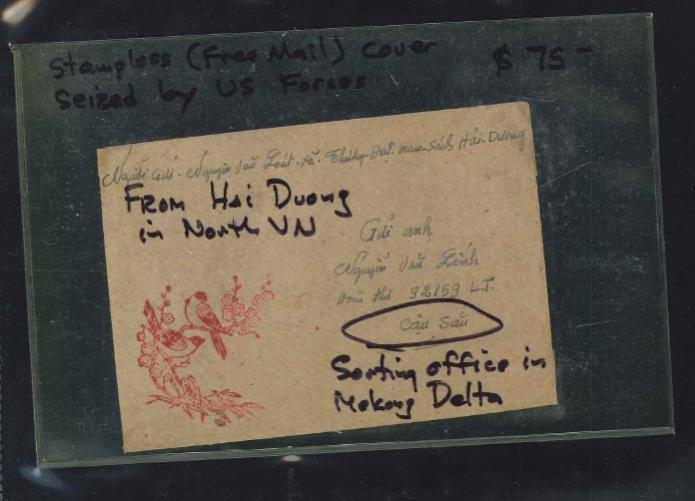 Stampless (Free Mail) Cover $75-
Seized by US Forces
Người Gửi - Nguyễn Văn Loát - xã - Thuỵ - Đạt. nam - Sách Hải - Dương
From Hai Duong
in North VN
Gửi anh
Nguyễn Văn Lênh
Hòm thư 92159 L.T.
Cậu Sáu
Sorting office in
Mekong Delta